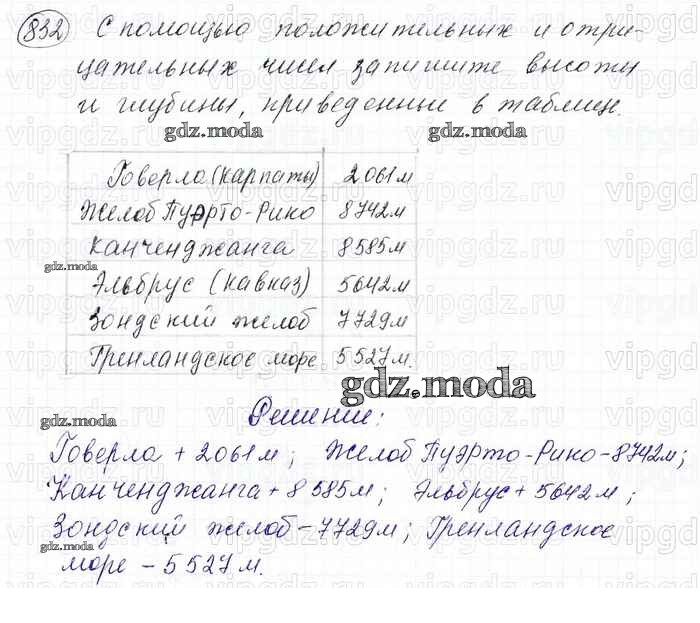 832 С помощью положительных и отри-
цательных чисел запишите высоты
и глубины, приведенные в таблице.
gdz.moda gdz.moda
Говерла (Карпаты) 2061м
Желоб Пуэрто-Рико 8742м
Канченджанга 8585м
gdz.moda
Эльбрус (Кавказ) 5642м
Зондский желоб 7729м
Гренландское море 5527м.
gdz.moda
gdz.moda Решение:
Говерла + 2061м; Желоб Пуэрто-Рико-8742м;
Канченджанга + 8585м; Эльбрус + 5642м;
gdz.moda
Зондский желоб - 7729м; Гренландское
море - 5527м.